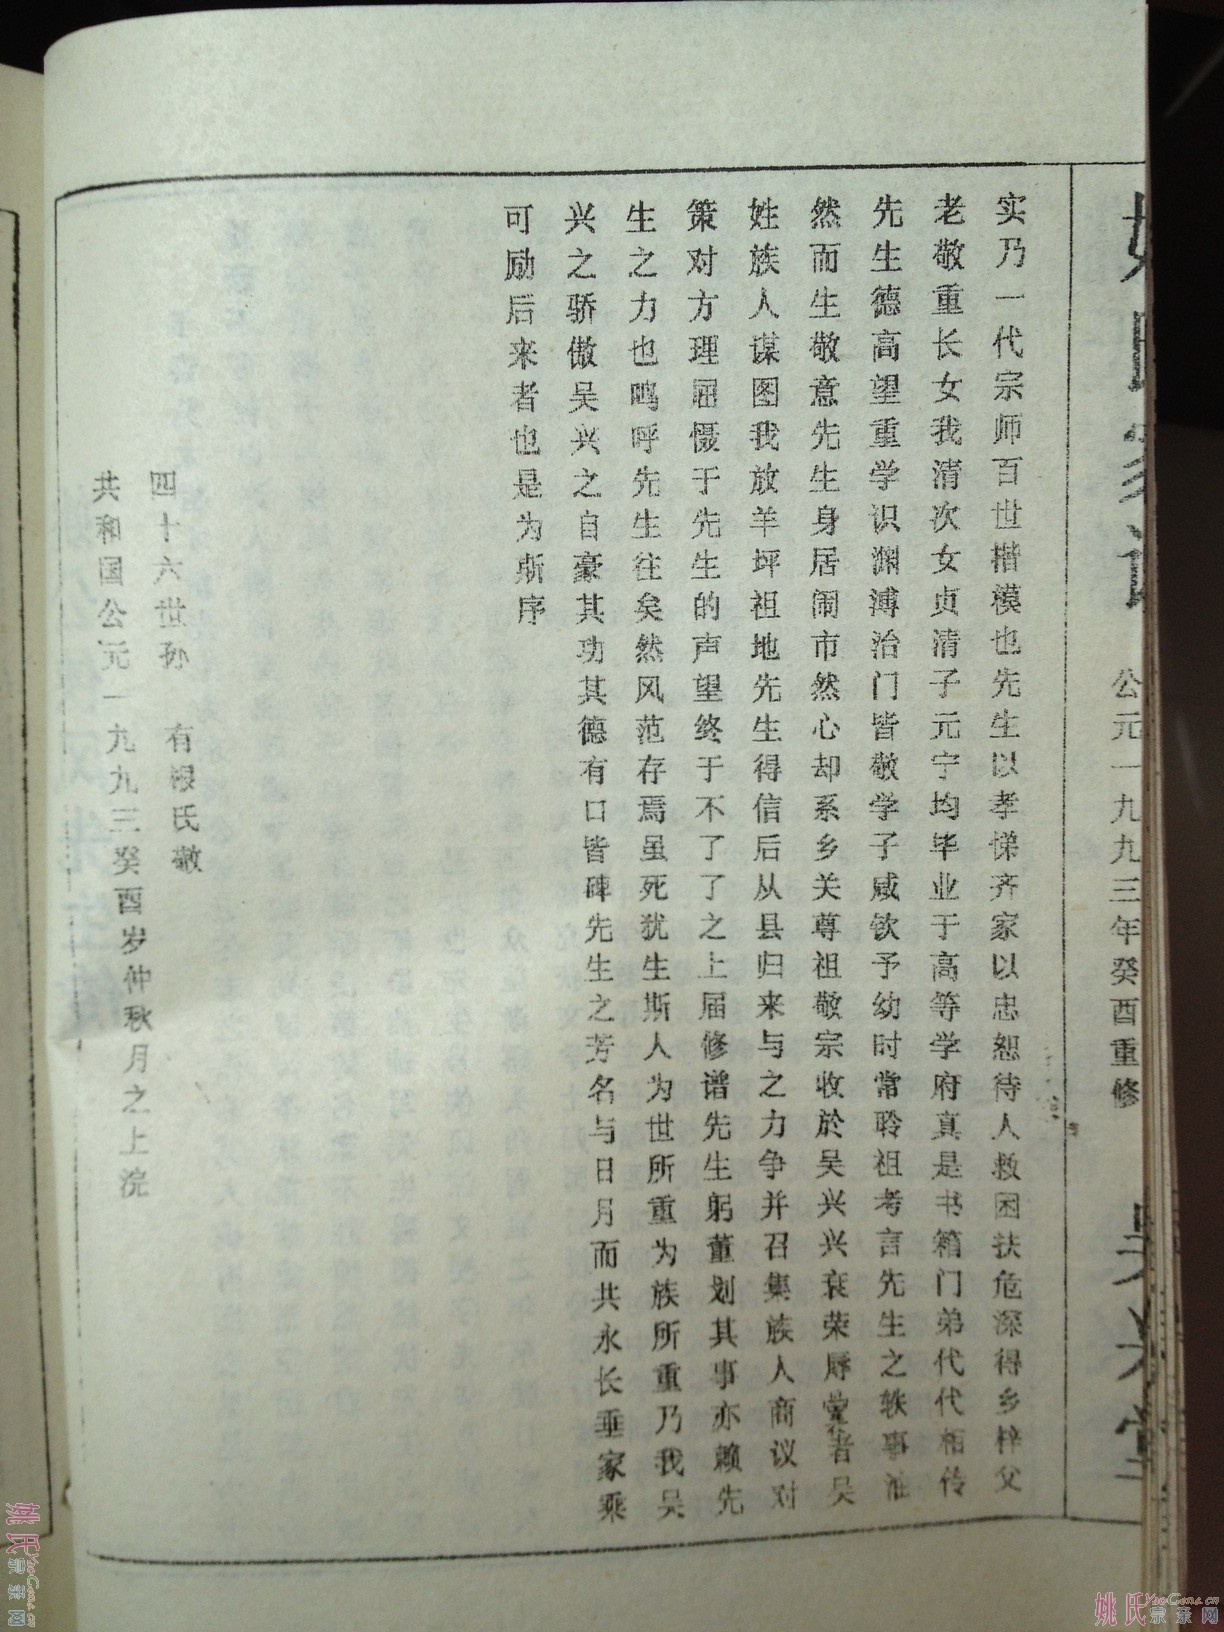 姚氏家谱 公元一九九三年癸酉重修 吴兴堂
实乃一代宗师百世楷模也先生以孝悌齐家以忠恕待人救困扶危深得乡梓父
老敬重长女我清次女贞清子元宁均毕业于高等学府真是书箱门弟代代相传
先生德高望重学识渊溥治门皆敬学子咸钦予幼时常聆祖考言先生之轶事油
然而生敬意先生身居闹市然心却系乡关尊祖敬宗收於吴兴兴衰荣辱萱者吴
姓族人谋图我放羊坪祖地先生得信后从县归来与之力争并召集族人商议对
策对方理屈慑于先生的声望终于不了了之上届修谱先生躬董划其事亦赖先
生之力也鸣呼先生往矣然风范存焉虽死犹生斯人为世所重为族所重乃我吴
兴之骄傲吴兴之自豪其功其德有口皆碑先生之芳名与日月而共永长垂家乘
可励后来者也是为斯序
四十六世孙 有根氏敬
共和国公元一九九三癸酉岁仲秋月之上浣
姚氏宗亲网
YaoGens.cn
姚氏宗亲网
YaoGens.cn